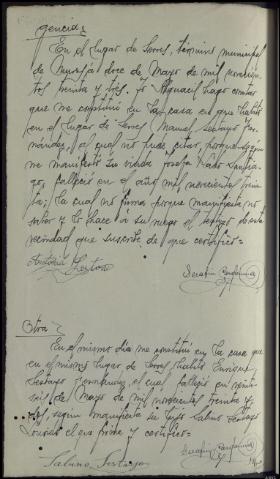 gencia:
En el lugar de Serres, término municipal
de Muros á doce de Mayo de mil novecien-
tos treinta y tres. Yo Alguacil hago constar
que me constituí en la casa en que habitó
en el lugar de Serres Manuel Sertayo Fer-
nández, el cual no pude citar, porque según
me manifestó su viuda Josefa Lado Santia-
go, falleció en el año mil novecientos trein-
ta; la cual no firma porque manifiesta no
saber y lo hace á su ruego el testigo de esta
vecindad que suscribe de que certifico=
Otra:
En el mismo día me constituí en la casa que
en el mismo lugar de Serres habitó Enrique
Sertayo, el cual falleció en
de Mayo de mil novecientos treinta y
según manifiesta su hijo Sertayo
el que firma y certifico=
Sertayo